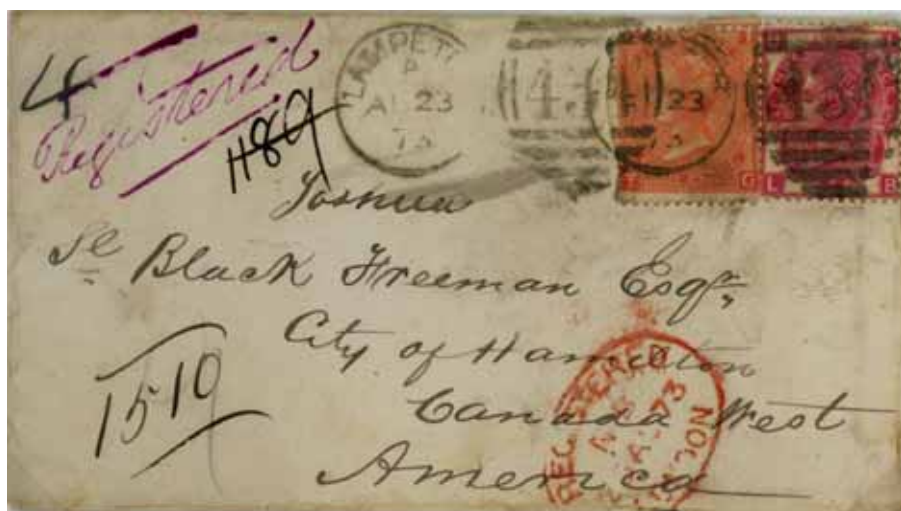 4
Registered
1189
LAMPETER
P
AU 23
73
43
AU 23
73
G
L B
Joshua
Black Freeman Esqr,
City of Hamilton
Canada West
America
1510
REGISTERED
73
LONDON